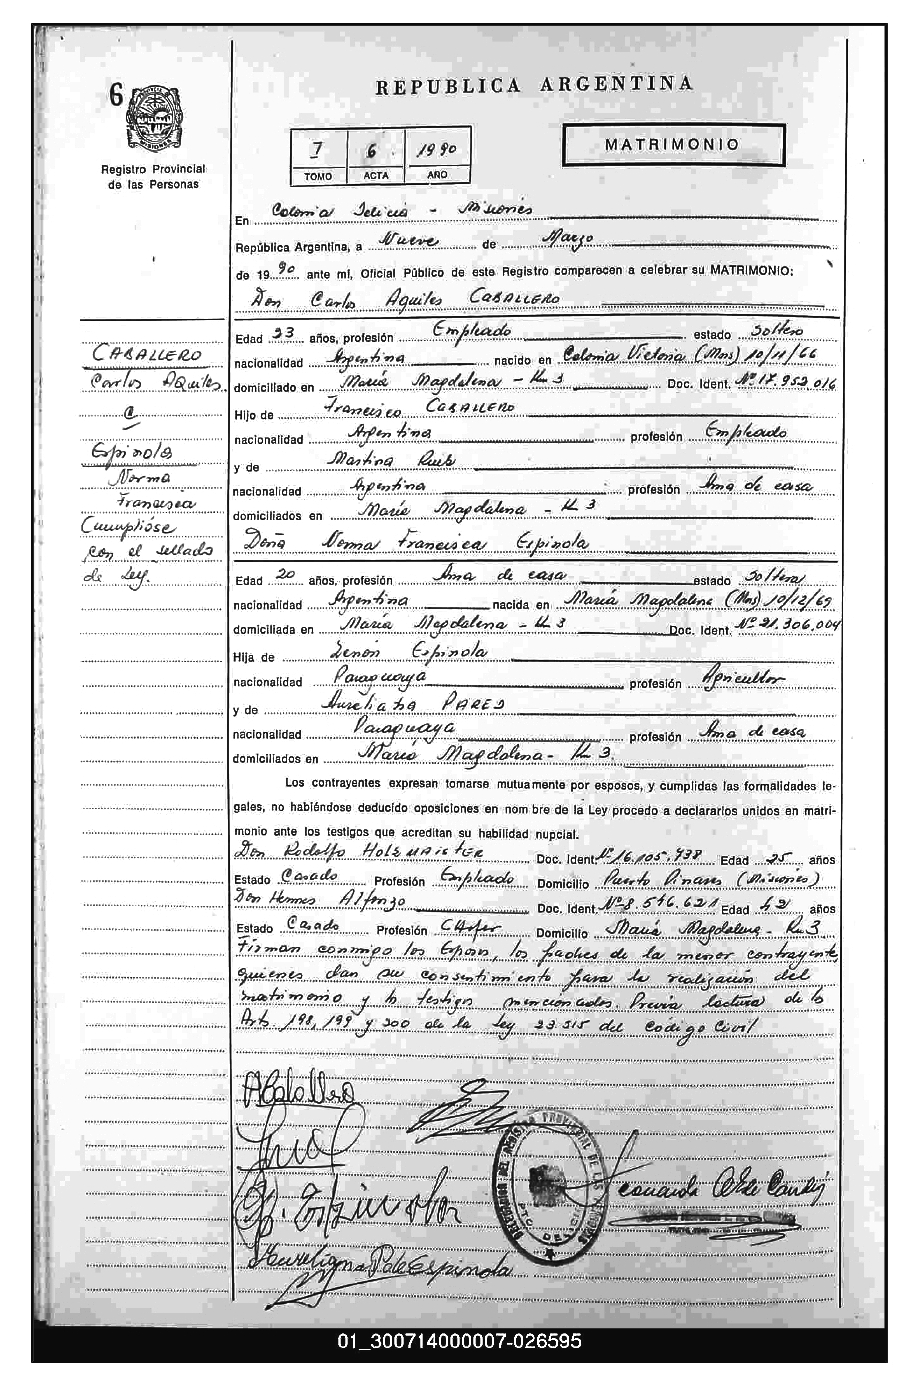 6
REPUBLICA ARGENTINA
Registro Provincial
de las Personas
I 6 1990
TOMO ACTA AÑO
MATRIMONIO
En Colonia Delicia - Misiones
República Argentina, a Nueve de Marzo
de 1990 ante mi, Oficial Público de este Registro comparecen a celebrar su MATRIMONIO:
Don Carlos Aquiles CABALLERO
Edad 23 años, profesión Empleado estado Soltero
nacionalidad Argentina nacido en Colonia Victoria (Mns) 10/11/66
domiciliado en María Magdalena - Km 3 Doc. Ident. Nº 17.952.016
Hijo de Francisco CABALLERO
nacionalidad Argentina profesión Empleado
y de Martina Ruiz
nacionalidad Argentina profesión Ama de casa
domiciliados en María Magdalena - Km 3
Doña Norma Francisca Espinola
Edad 20 años, profesión Ama de casa estado Soltera
nacionalidad Argentina nacida en María Magdalena (Mns) 10/12/69
domiciliada en María Magdalena - Km 3 Doc. Ident. Nº 21.306.004
Hija de Zenón Espinola
nacionalidad Paraguaya profesión Agricultor
y de PARED
nacionalidad Paraguaya profesión Ama de casa
domiciliados en María Magdalena - Km 3.
Los contrayentes expresan tomarse mutuamente por esposos, y cumplidas las formalidades le-
gales, no habiéndose deducido oposiciones en nombre de la Ley procedo a declararlos unidos en matri-
monio ante los testigos que acreditan su habilidad nupcial.
Don Rodolfo HOLZMAISTER Doc. Ident. Nº 16.105.738 Edad 25 años
Estado Casado Profesión Empleado Domicilio Puerto Pinares (Misiones)
Don Hermes Alfonzo Doc. Ident. Nº 8.546.621 Edad 42 años
Estado Casado Profesión CHofer Domicilio María Magdalena - Km 3
Firman conmigo los Esposos, los padres de la menor contrayente,
quienes dan su consentimiento para la realización del
matrimonio y los testigos mencionados. Previa lectura de los
Arts 198, 199 y 200 de la Ley 23.515 del Codigo Civil
CABALLERO
Carlos Aquiles
c/
Espinola
Norma
Francisca
Cumplióse
con el sellado
de Ley.
ACaballero
Espinola
P de Espinola
PROVINCIAL DE LAS PERSONAS
PTO. DELICIA
01_300714000007-026595